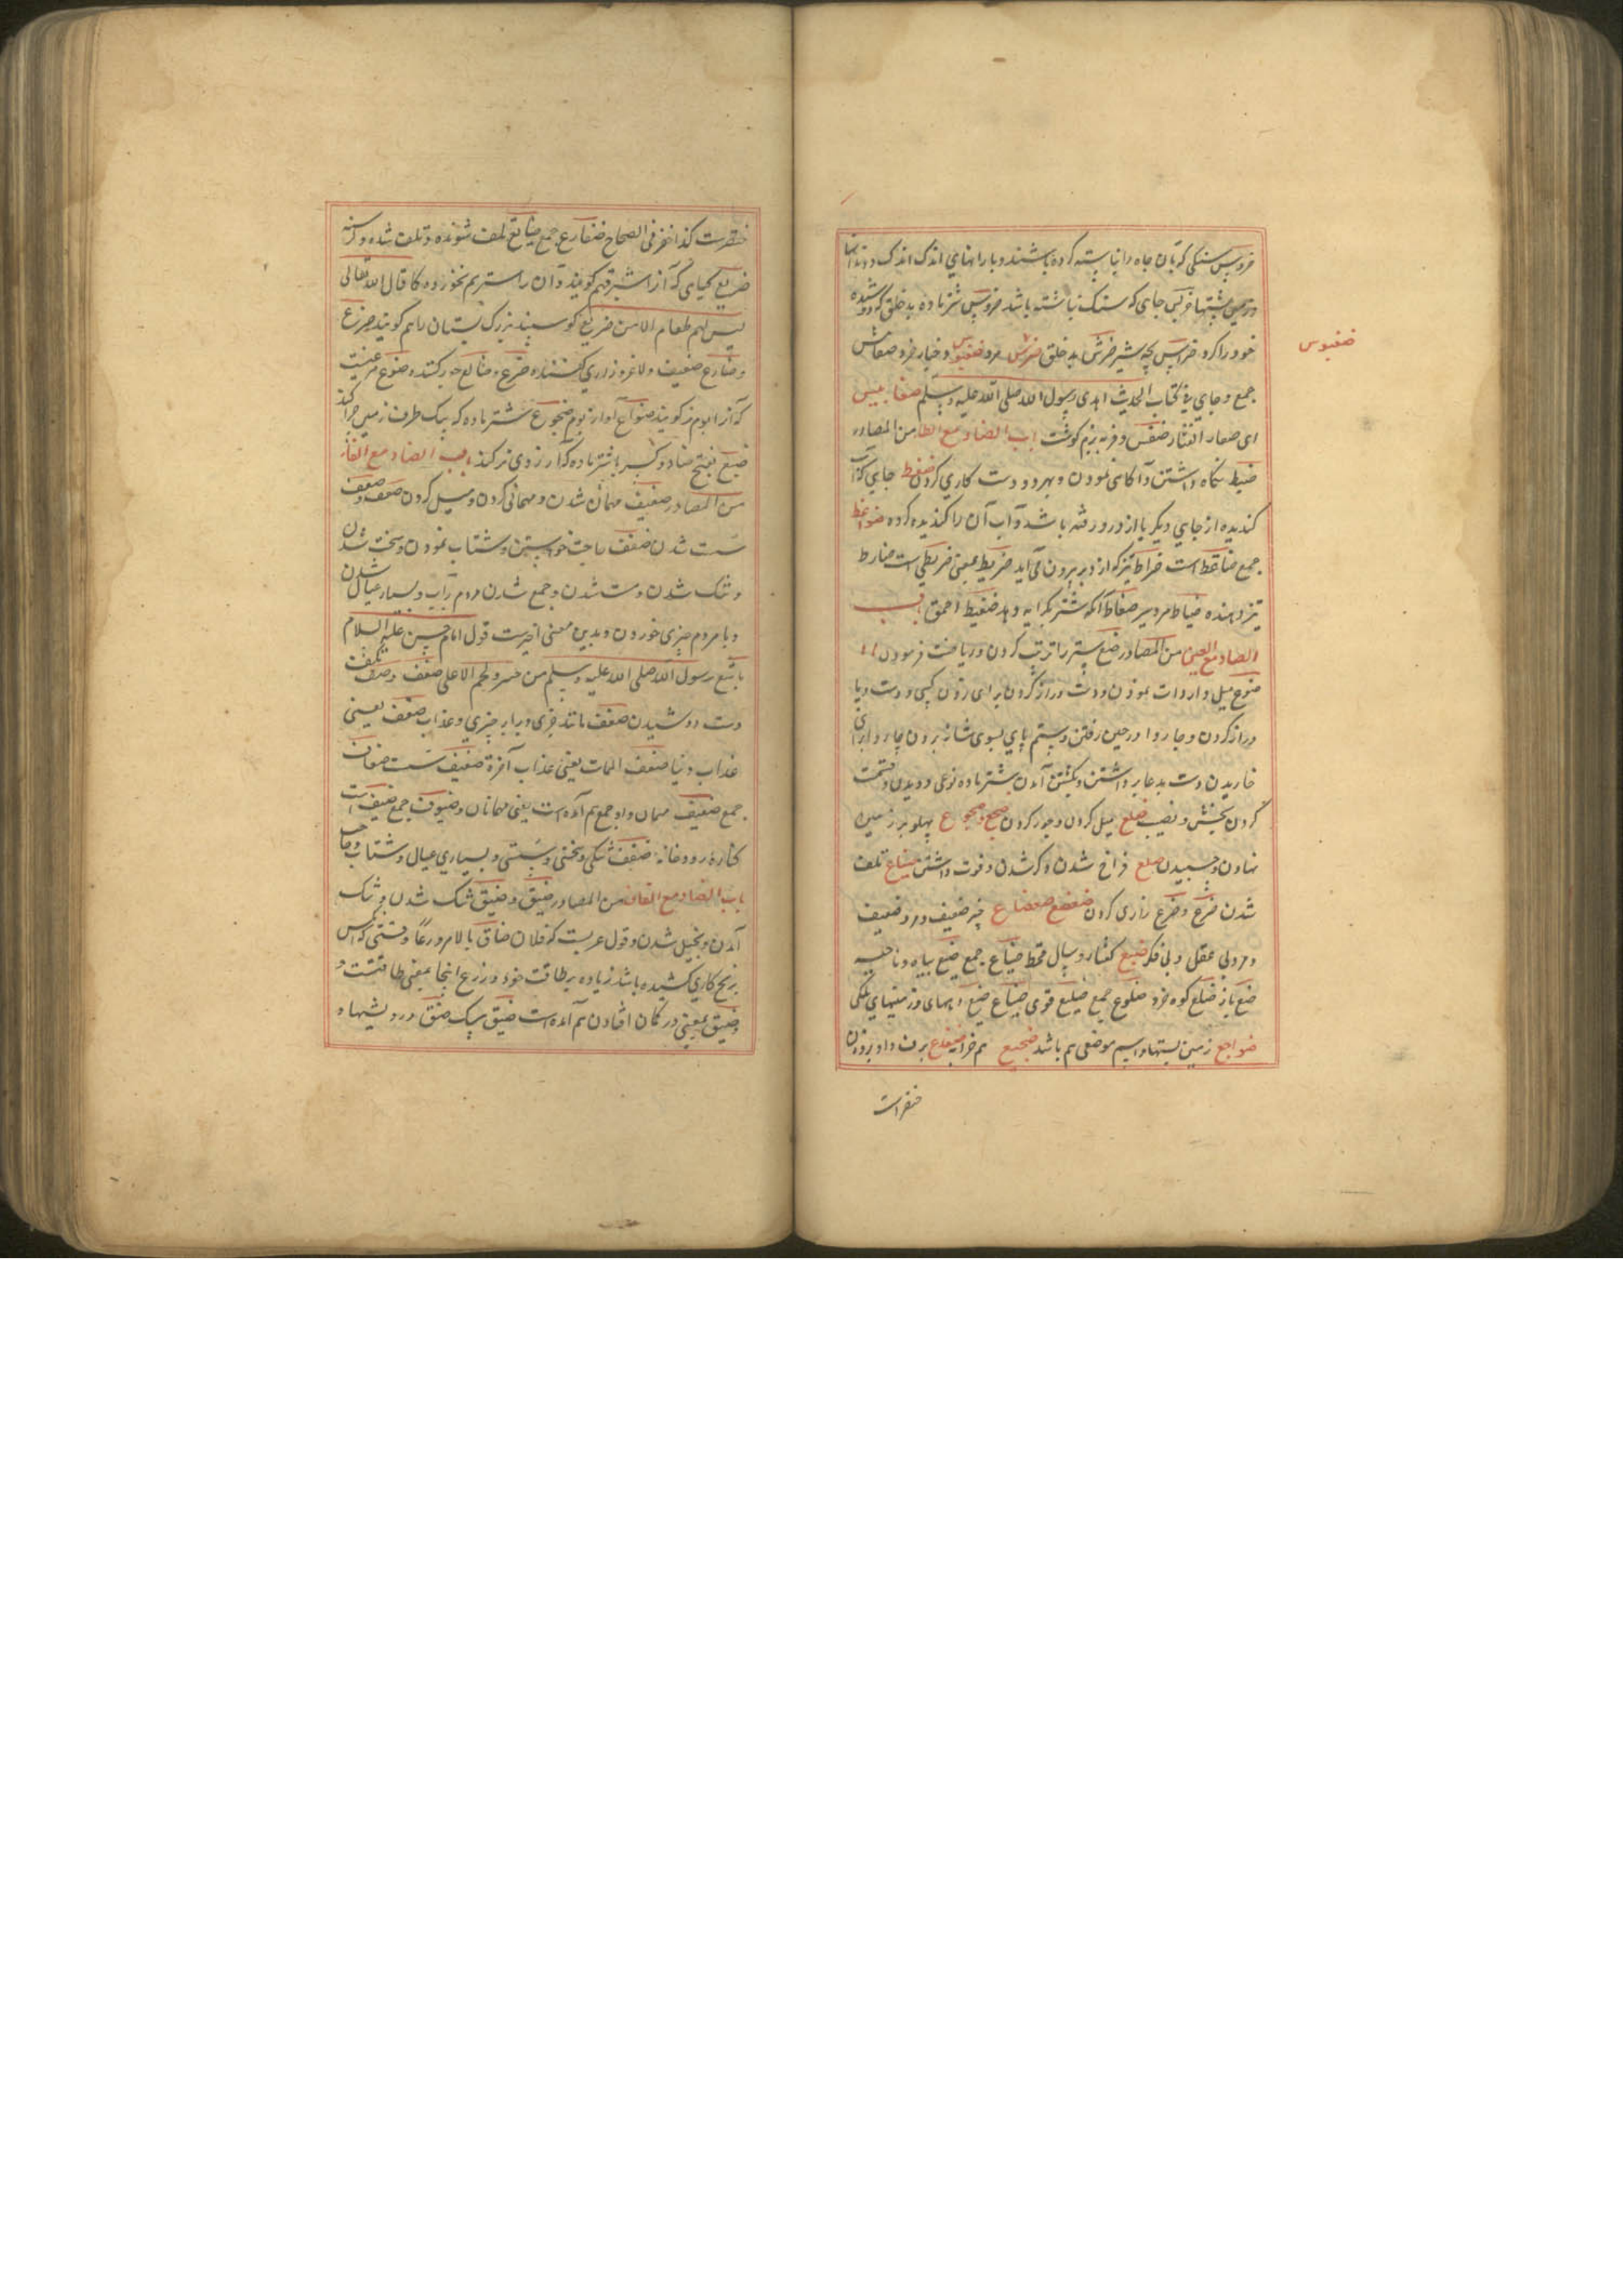 ضروس سنگی که بآن چاه را بنا بسته کرده باشند و بارانهای اندک اندک و دندانها
و زمین پشتها ضریس جایی که سنگ بناشته باشد ضروس شتر ماده بد خلق که دوشنده
خود را گزد ضراس بچه شیر ضرش بد خلق ضرش مرد ضغبوس و خیار خرد ضعامس
ضغبوس
جمع و جای فی کتاب الحدیث اهدی رسول الله صلی الله علیه و سلم ضغابیس
ای صغار القثاء ضنفس و فربه نرم گوشت باب الضاد مع الطا من المصادر
ضبط نگاه داشتن و آگاهی نمودن و بهر دو دست کاری کردن ضغط جایی که آب
گندیده از جایی دیگر باز درو رفته باشد و آب آن را گندیده کرده ضواغط
جمع ضاغط است ضراط تیز که از دبر بیرون می آید ضریط بمعنی ضریطی است ضارط
تیز دهنده ضیاط مرد ضفاط آنکه شتر بکرایه دهد ضفیط احمق باب
الضاد مع العین من المصادر ضبع شتر را ترتیب کردن و ریاضت فرمودن
ضبوع میل و ارادت نمودن و دست دراز کردن برای زدن کسی و دست و پا
دراز کردن و چاروا در حین رفتن و ستم پای بسوی شانه بردن چاروا برای
خاریدن و دست بدعا برداشتن و بگشن آمدن شتر ماده نوعی دویدن و قسمت
کردن بخش و نصیب ضلع میل کردن و جور کردن ضجع و ضجوع پهلو بر زمین
نهادن و چسپیدن ضلع فراخ شدن و کژ شدن و قوت داشتن ضیاع تلف
شدن ضرع و ضرع زاری کردن ضعضع ضعضاع چیز ضعیف و مرد ضعیف
و مرد بی عقل و بی فکر ضبع کفتار و سال قحط ضباع جمع ضبع سیاه و ناحیه
ضبع باز ضلع کوه خرد ضلوع جمع ضلیع قوی ضیاع ضیع دیهای و زمینهای ملکی
ضواجع زمین پستها و اسم موضعی هم باشد ضجیع هم خرابه ضفدع بر وزن داود
ضفرات
کذا ذکر فی الصحاح ضفادع جمع ضایع تلف شونده و تلف شده و گرسنه
ضریع گیاهی که آن را شبرق هم گویند و آن را ستر هم نخورده کما قال الله تعالی
لیس لهم طعام الا من ضریع گوسپند بزرگ پستان را هم گویند ضرع
و ضارع ضعیف و لاغر و زاری کننده ضرع و ضالع جور کننده ضوع مرغیست
که آن را بوم نر گویند ضواع آواز بوم ضجوع شتر ماده که بیک طرف زمین چرا کند
ضبع بفتح ضاد و کسر با شتر ماده که آرزوی نر کند باب الضاد مع الفا
من المصادر ضیف مهمان شدن و مهمانی کردن و میل کردن ضعف و ضعف
سست شدن ضفف حاجت خواستن و شتاب نمودن و سخت شدن
و تنک شدن و سست شدن و جمع شدن مردم بر آب و بسیار عیال شدن
و با مردم چیزی خوردن و بدین معنی اخیرست قول امام حسین علیه السلام
ما شبع رسول الله صلی الله علیه و سلم من خبز و لحم الا علی ضفف و ضف بکف
دست دوشیدن ضعف مانند چیزی و برابر چیزی و عذاب ضعف یعنی
عذاب دنیا ضعف الممات یعنی عذاب آخرة ضعیف سست ضعفان
جمع ضیف مهمان و او جمع هم آمده است یعنی مهمانان و ضیوف جمع ضیف است
کناره رودخانه ضفف تنکی و سختی و سستی و بسیاری عیال و شتاب و حاجت
باب الضاد مع القاف من المصادر ضیق و ضیق تنک شدن و تنک
آمدن و بخیل شدن و قول عربست که فلان ضاق بالامر ذرعا وقتی که کس
برنج کاری کشیده باشد زیاده بر طاقت خود و ذرع اینجا بمعنی طاقتست
و ضیق بمعنی در گمان افتادن هم آمده است ضیق ضیق درویشیها و